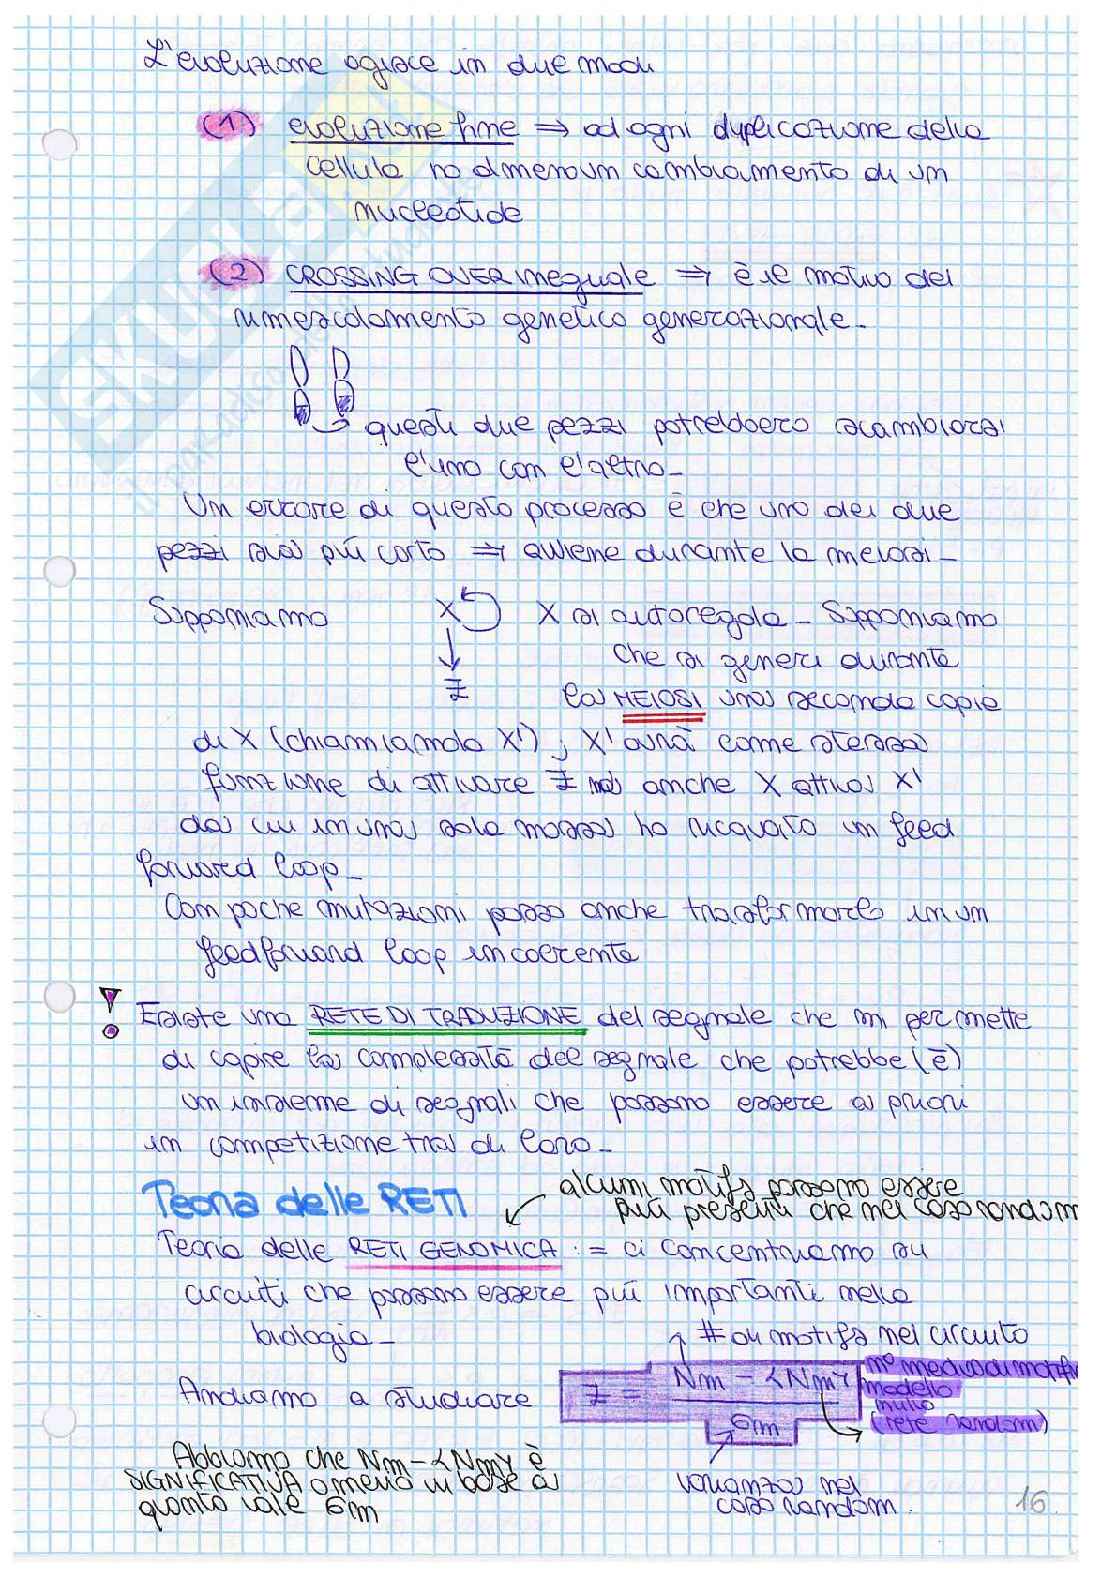 L'evoluzione agisce in due modi
(1) evoluzione fine ⇒ ad ogni duplicazione della
cellula ho almeno un cambiamento di un
nucleotide
(2) CROSSING OVER ineguale ⇒ è il motivo del
rimescolamento genetico generazionale.
questi due pezzi potrebbero scambiarsi
l'uno con l'altro.
Un errore di questo processo è che uno dei due
pezzi sia più corto ⇒ avviene durante la meiosi.
Supponiamo X X si autoregola. Supponiamo
che si generi durante
Z la MEIOSI una seconda copia
di X (chiamiamola X'); X' avrà come stessa
funzione di attivare Z ma anche X attiva X'
da cui in una sola mossa ho ricavato un feed
forward loop.
Con poche mutazioni posso anche trasformarlo in un
feedforward loop incoerente
! Esiste una RETE DI TRADUZIONE del segnale che mi permette
di capire la complessità del segnale che potrebbe (è)
un insieme di segnali che possono essere a priori
in competizione tra di loro.
alcuni motifs possono essere
più presenti che nel caso random
Teoria delle RETI
Teoria delle RETI GENOMICA := ci concentriamo su
circuiti che possono essere più importanti nella
biologia.
# di motifs nel circuito
Andiamo a studiare Z = Nm - <Nm> / σm
n° medio di motifs
modello
nullo
(rete random)
Abbiamo che Nm - <Nm> è
SIGNIFICATIVA o meno in base a
quanto vale σm
varianza nel
caso random.
16